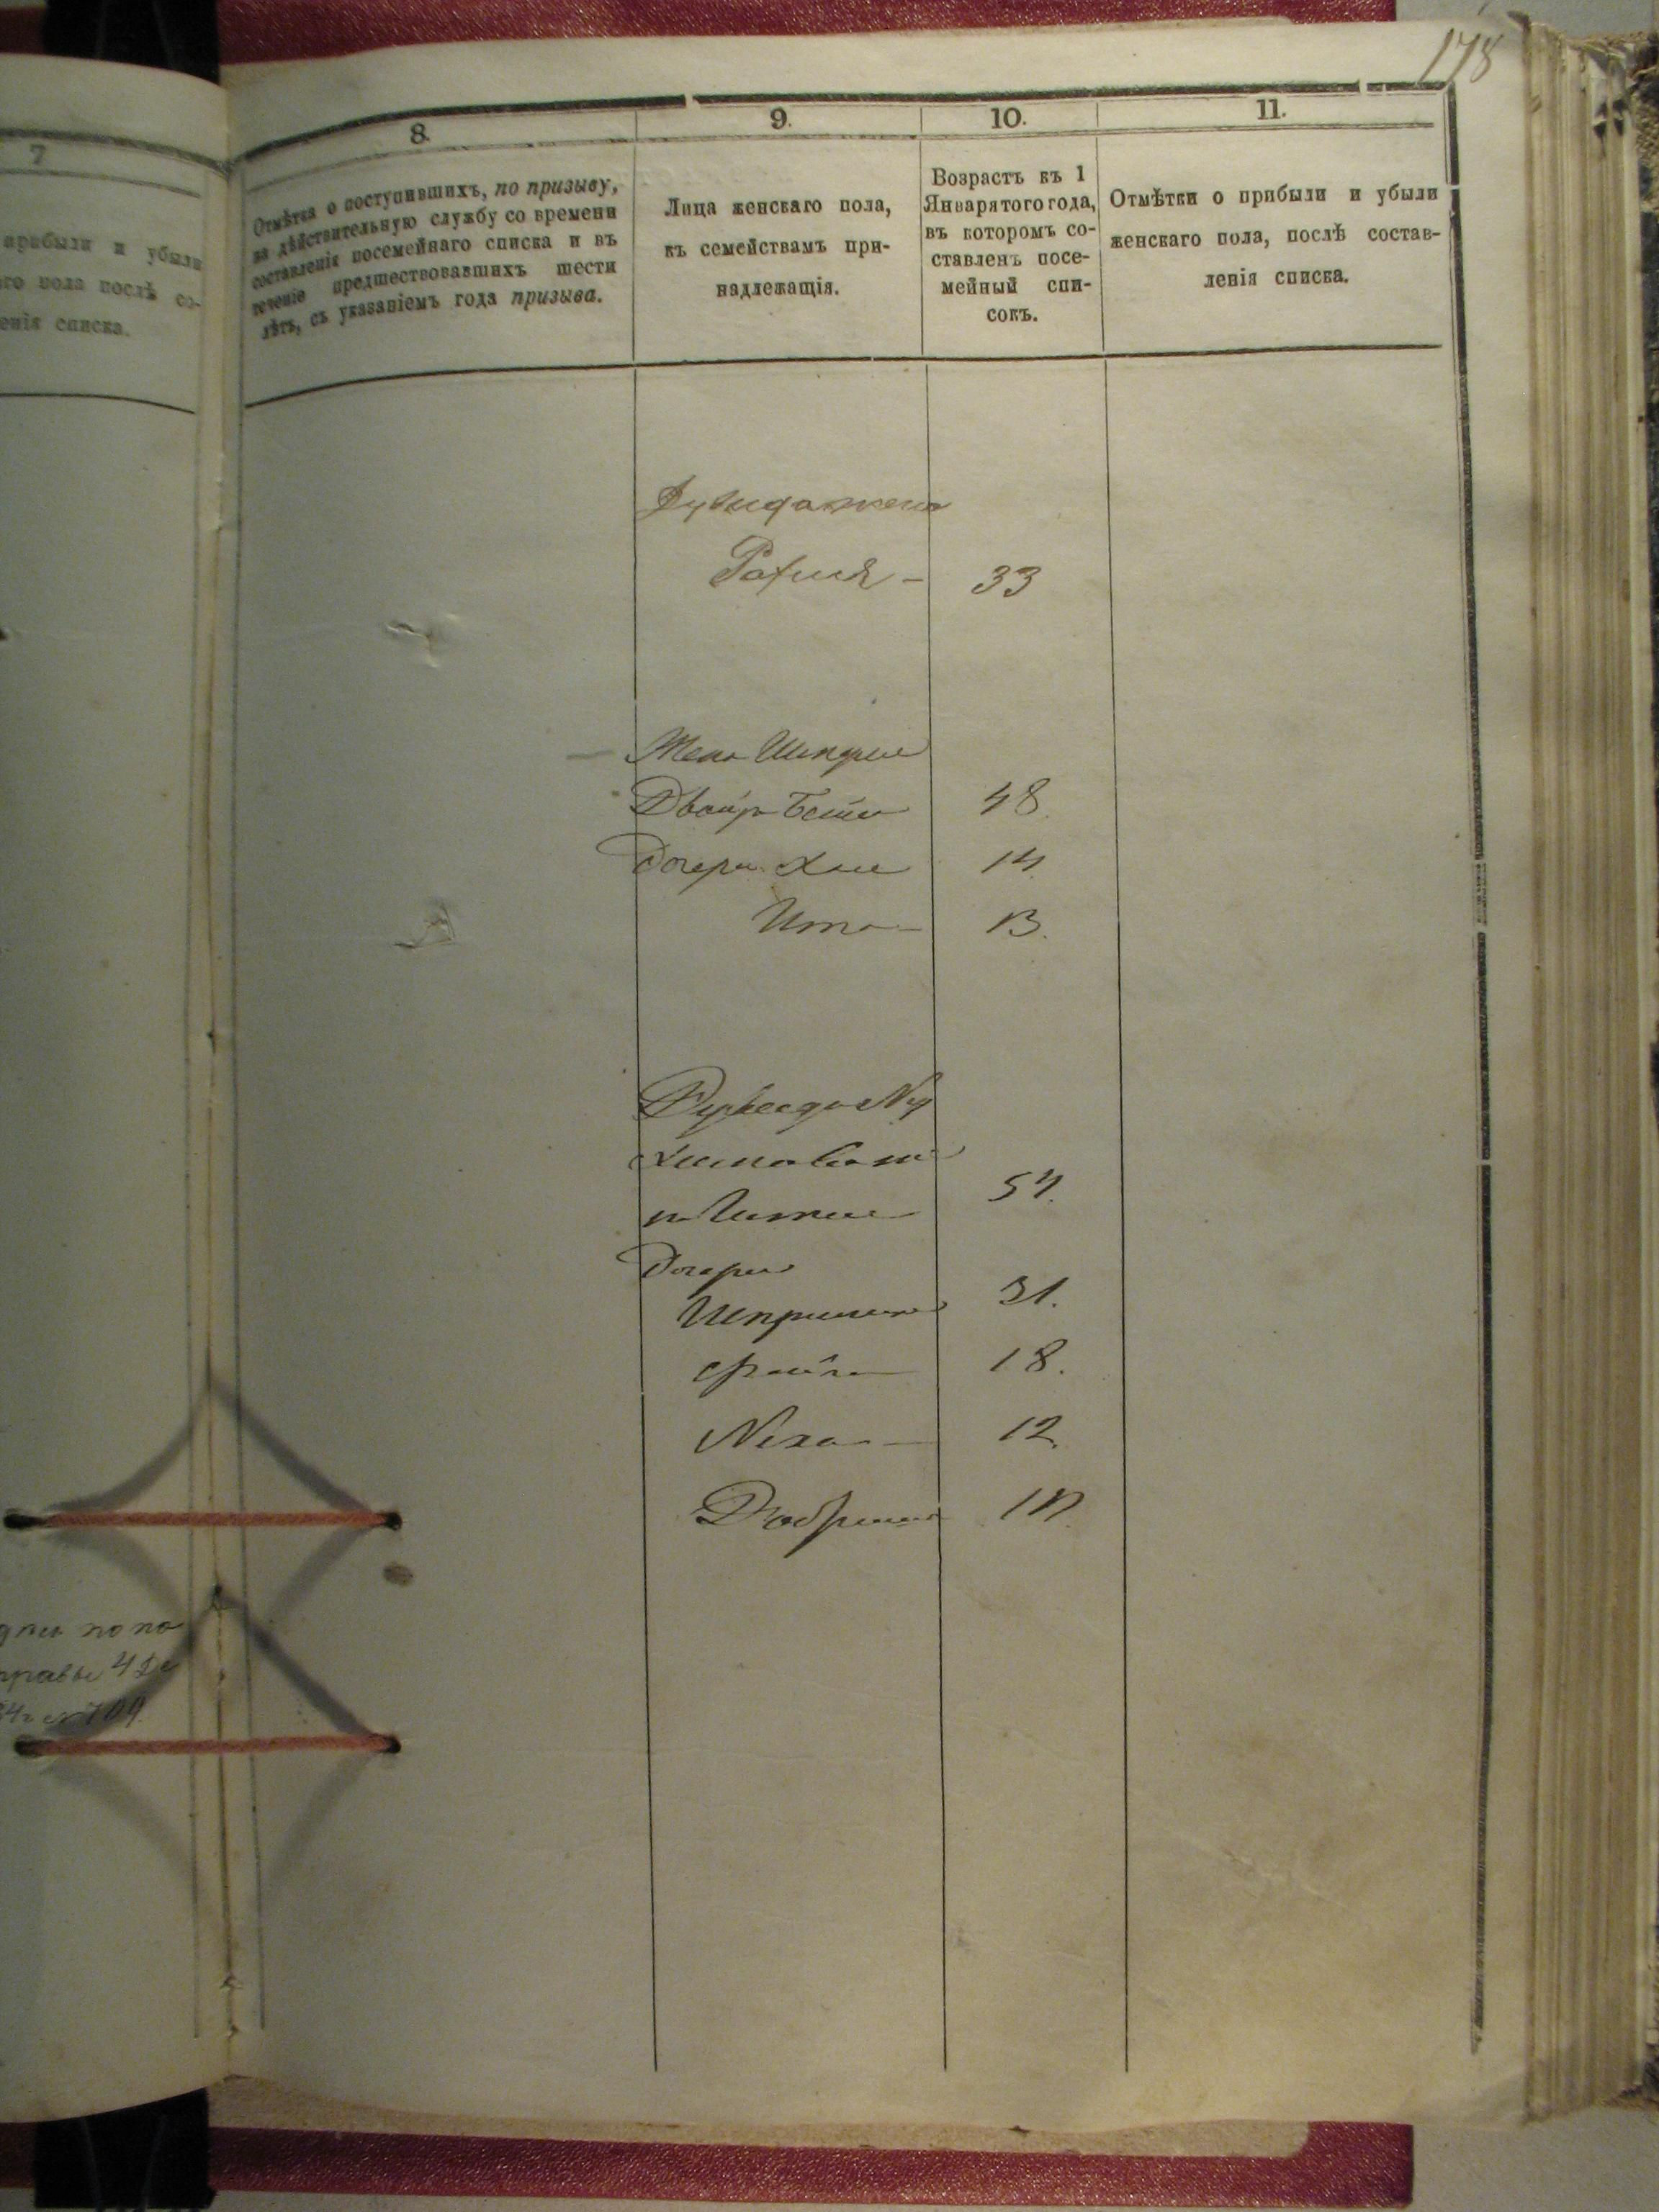 178
7
прибыли и убыли
го пола послѣ со-
енія списка.
8.
Отмѣтка о поступившихъ, по призыву,
на дѣйствительную службу со времени
составленія посемейнаго списка и въ
теченіе предшествовавшихъ шести
лѣтъ, съ указаніемъ года призыва.
9.
Лица женскаго пола,
къ семействамъ при-
надлежащія.
10.
Возрастъ къ 1
Января того года,
въ которомъ со-
ставленъ посе-
мейный спи-
сокъ.
11.
Отмѣтки о прибыли и убыли
женскаго пола, послѣ состав-
ленія списка.
жена
33
Жена
Двойра Бейла 48.
Дочери Хая 14
Ита 13.
54.
Дочери
31.
Фейга 18.
Неха 12.
Добрина
по по